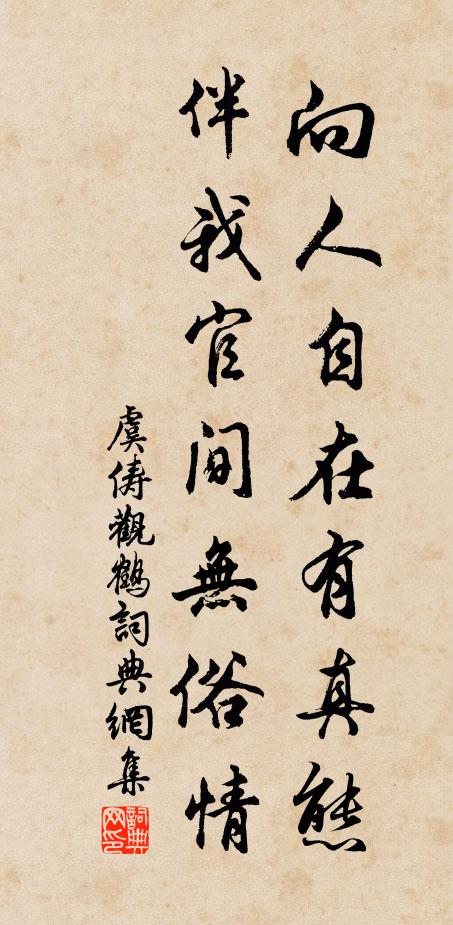 向人自在有真態
伴我官間無俗情
虞儔觀鶴詞典網集
詞典網印